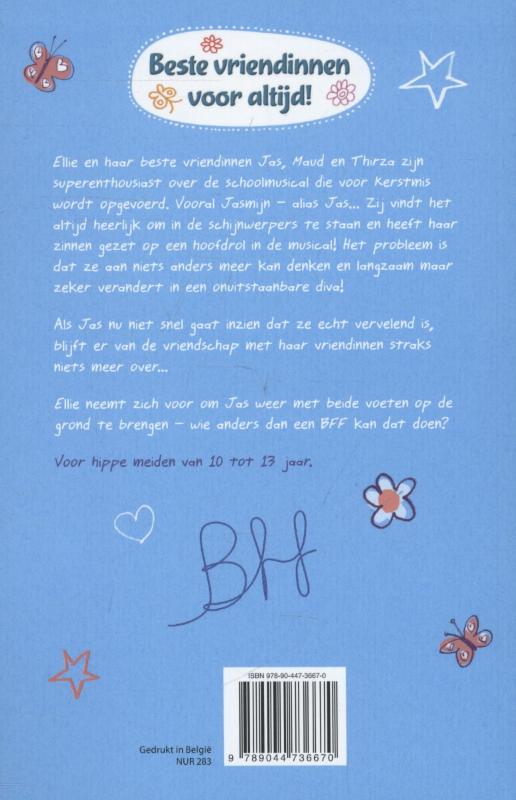 Beste vriendinnen
voor altijd!
Ellie en haar beste vriendinnen Jas, Maud en Thirza zijn
superenthousiast over de schoolmusical die voor Kerstmis
wordt opgevoerd. Vooral Jasmijn – alias Jas... Zij vindt het
altijd heerlijk om in de schijnwerpers te staan en heeft haar
zinnen gezet op een hoofdrol in de musical! Het probleem is
dat ze aan niets anders meer kan denken en langzaam maar
zeker verandert in een onuitstaanbare diva!
Als Jas nu niet snel gaat inzien dat ze echt vervelend is,
blijft er van de vriendschap met haar vriendinnen straks
niets meer over...
Ellie neemt zich voor om Jas weer met beide voeten op de
grond te brengen – wie anders dan een BFF kan dat doen?
Voor hippe meiden van 10 tot 13 jaar.
Bff
ISBN 978-90-447-3667-0
Gedrukt in België
NUR 283
9 789044 736670